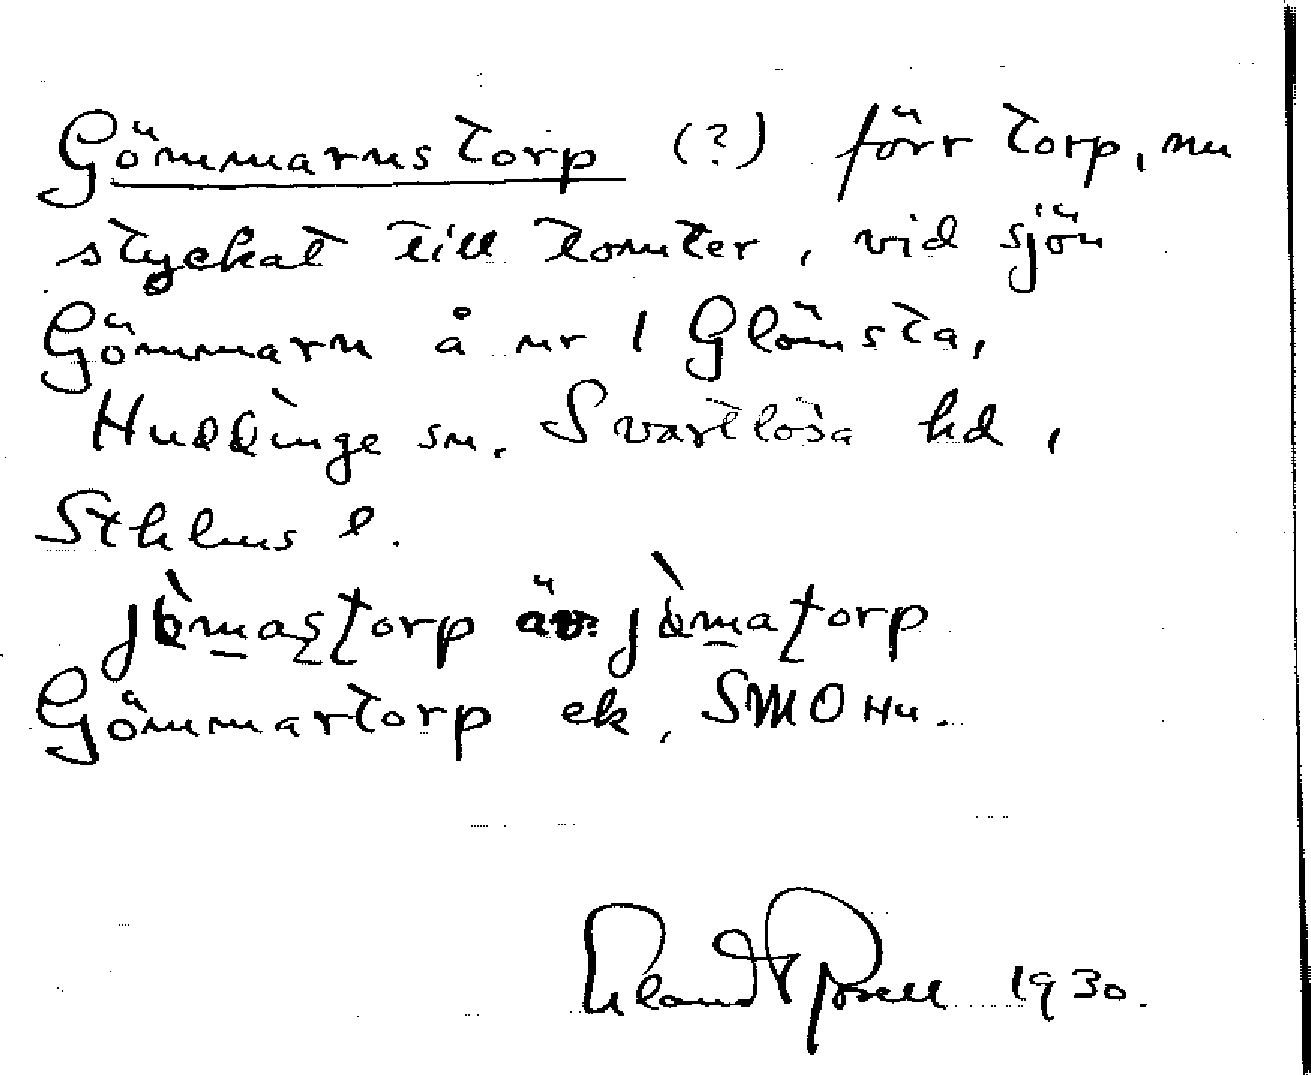 Gömmarnstorp (?) förr torp, nu
styckat till tomter, vid sjön
Gömmarn å nr 1 Glömsta,
Huddinge sn. Svartlösa hd,
Sthlms l.
Gömmartorp ek, SMO Hu.
1930.